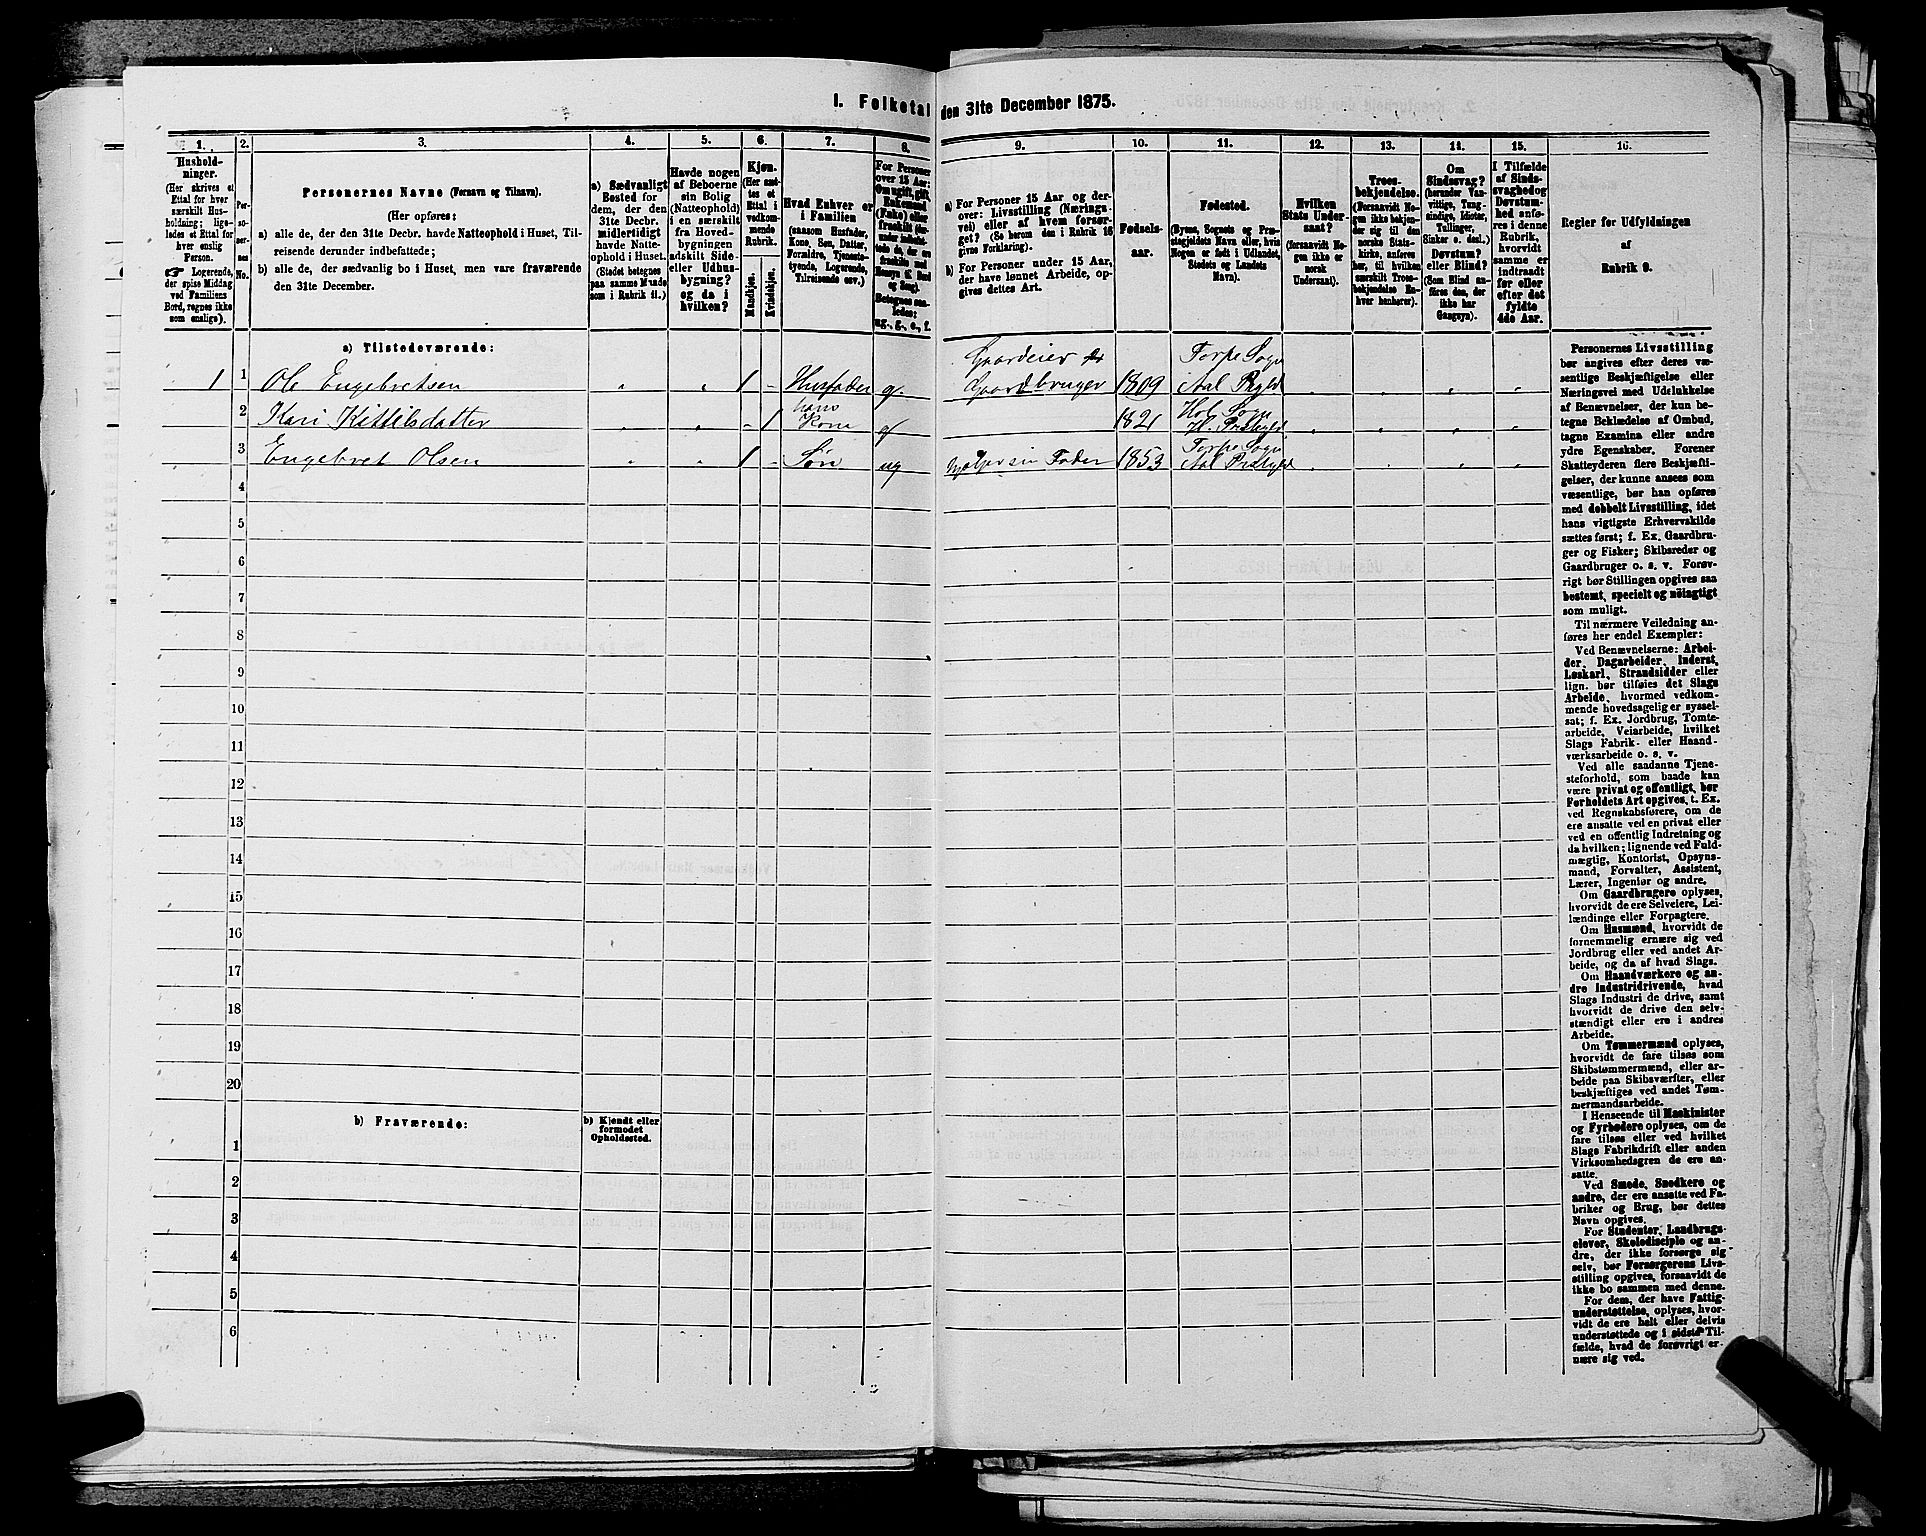 I. Folketal den 31te December 1875.
1. 2. 3. 4. 5. 6. 7. 8. 9. 10. 11. 12. 13. 14. 15. 16.
Hushold-
ninger.
(Her skrives et
Ettal for hver
særskilt Hus-
holdning; lige-
ledes et Ettal for
hver enslig
Person.
☛ Logerende,
der spise Middag
ved Familiens
Bord, regnes ikke
som enslige).
Per-
so-
ner-
nes
No.
Personernes Navne (Fornavn og Tilnavn).
(Her opføres:
a) alle de, der den 31te Decbr. havde Natteophold i Huset, Til-
reisende derunder indbefattede;
b) alle de, der sædvanlig bo i Huset, men vare fraværende
den 31te December.
a) Sædvanligt
Bosted for
dem, der den
31te Decbr.
midlertidigt
havde Natte-
ophold i Huset.
(Stedet betegnes
paa samme Maade
som i Rubrik 11.)
Havde nogen
af Beboerne
sin Bolig
(Natteophold)
i en særskilt
fra Hoved-
bygningen
adskilt Side-
eller Udhus-
bygning?
og da i
hvilken?
Kjøn.
(Her sæt-
tes et
Ettal i
vedkom-
mende
Rubrik.
Mandkjøn.
Kvindekjøn.
Hvad Enhver er
i Familien
(saasom Husfader,
Kone, Søn, Datter,
Forældre, Tjeneste-
tyende, Logerende,
Tilreisende osv.)
For Personer
over 15 Aar:
Om ugift, gift,
Enkemand
(Enke) eller
fraskilt
Betegnes saa-
ledes:
ug., g., e., f.
a) For Personer 15 Aar og der-
over: Livsstilling (Nærings-
vei) eller af hvem forsør-
get? (Se herom des i Rubrik 16
gives Forklaring).
b) For Personer under 15 Aar,
der have lønnet Arbeide, op-
gives dettes Art.
Fødsels-
aar.
Fødested.
(Byens, Sognets og Præ-
stegjeldets Navn eller, hvis
Nogen er født i Udlandet,
Stedets og Landets
Navn).
Hvilken
Stats Under-
saat?
(forsaavidt No-
gen ikke er
norsk
Undersaat).
Troes-
bekjendelse.
(Forsaavidt No-
gen ikke bekjen-
der sig til den
norske Stats-
kirke, anføres
her, til hvilken
særskilt Troes-
bekjendelse En-
hver henhører).
Om
Sindssvag?
(herunder Van-
vittige, Tung-
sindige, Idioter,
Tullinger,
Sinker o. desl.)
Døvstum?
eller Blind?
(Som Blind an-
føres den, der
ikke har
Gangsyn).
I Tilfælde
af Sinds-
svaghed og
Døvstum-
hed anfø-
res i denne
Rubrik,
hvorvidt
samme er
indtraadt
før eller
efter det
fyldte
4de Aar.
Regler for Udfyldningen
af
Rubrik 9.
a) Tilstedeværende:
Gaardeier
Torpe Sogn
1 1 Ole Engebretsen 1 Husfader g. Gaardbruger 1809 Aal Prgld
hans
Hol Sogn
2 Kari Kittilsdatter 1 Kone g 1821 H. Prstgld
Torpe Sogn
3 Engebret Olsen 1 Søn ug hjælper sin Fader 1853 Aal Prstgld
4
5
6
7
8
9
10
11
12
13
14
15
16
17
18
19
20
b) Fraværende:
b) Kjendt eller
formodet
Opholdssted.
1
2
3
4
5
6
Personernes Livsstilling
bør angives efter deres væ-
sentlige Beskjæftigelse eller
Næringsvei med Udelukkelse
af Benævnelser, der kun be-
tegne Beklædelse af Ombud,
tagne Examina eller andre
ydre Egenskaber. Forener
Skatteyderen flere Beskjæfti-
gelser, der kunne ansees som
væsentlige, bør han opføres
med dobbelt Livsstilling, idet
hans vigtigste Erhvervskilde
sættes først; f. Ex. Gaardbru-
ger og Fisker; Skibsreder og
Gaardbruger o. s. v. Forøv-
rigt bør Stillingen opgives saa
bestemt, specielt og nøiagtigt
som muligt.
Til nærmere Veiledning an-
føres her endel Exempler:
Ved Benævnelserne: Arbei-
der, Dagarbeider, Inderst,
Løskarl, Strandsidder eller
lign. bør tilføies det Slags
Arbeide, hvormed vedkom-
mende hovedsagelig er syssel-
sat; f. Ex. Jordbrug, Tomte-
arbeide, Veiarbeide, hvilket
Slags Fabrik- eller Haand-
værksarbeide o. s. v.
Ved alle saadanne Tjene-
steforhold, som baade kan
være privat og offentligt, bør
Forholdets Art opgives, t. Ex.
ved Regnskabsførere, om de
ere ansatte ved en privat eller
ved en offentlig Indretning og
da hvilken; lignende ved Fuld-
mægtig, Kontorist, Opsyns-
mand, Forvalter, Assistent,
Lærer, Ingeniør og andre.
Om Gaardbrugere oplyses,
hvorvidt de ere Selveiere, Lei-
lændinge eller Forpagtere.
Om Husmænd, hvorvidt de
fornemmelig ernære sig ved
Jordbrug eller ved andet Ar-
beide, og da af hvad Slags.
Om Haandværkere og an-
dre Industridrivende, hvad
Slags Industri de drive, samt
hvorvidt de drive den selv-
stændigt eller ere i andres
Arbeide.
Om Tømmermænd oplyses,
hvorvidt de fare tilsøs som
Skibstømmermænd, eller ar-
beide paa Skibsværfter, eller
beskjæftiges ved andet Tøm-
mermandsarbeide.
I Henseende til Maskinister
og Fyrbødere oplyses, om de
fare tilsøs eller ved hvilket
Slags Fabrikdrift eller anden
Virksomhedsgren de ere an-
satte.
Ved Smede, Snedkere og
andre, der ere ansatte ved Fa-
briker og Brug, bør dettes
Navn opgives.
For Studenter, Landbrugs-
elever, Skoledisciple og an-
dre, der ikke forsørge sig
selv, bør Forsørgerens Livs-
stilling opgives, forsaavidt de
ikke bo sammen med denne.
For dem, der have Fattig-
understøttelse, oplyses, hvor-
vidt de ere helt eller delvis
understøttede og i sidste Til-
fælde, hvad de forøvrigt er-
nære sig ved.